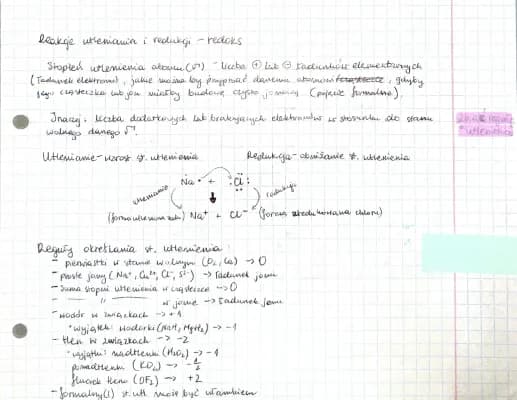 Reakcje utleniania i redukcji - redoks
Stopień utlenienia atomu (√) - liczba ⊕ lub ⊖ ładunków elementarnych
(ładunek elektronu), jakie można by przypisać danemu atomowi, gdyby
jego cząsteczka lub jon miały budowę czysto jonową (pojęcie formalne).
Inaczej: liczba dodatkowych lub brakujących elektronów w stosunku do stanu
wolnego danego √.
Utlenianie - wzrost st. utlenienia Redukcja - obniżanie st. utlenienia
Na• + :Cl:
utlenianie redukcja
(forma utleniona sodu) Na⁺ + Cl⁻ (forma zredukowana chloru)
Reguły określania st. utlenienia:
- pierwiastki w stanie wolnym (O₂, Cu) → 0
- proste jony (Na⁺, Cu²⁺, Cl⁻, S²⁻) → ładunek jonu
- suma stopni utlenienia w cząsteczce → 0
- — " — w jonie → ładunek jonu
- wodór w związkach → +1
*wyjątek: wodorki (NaH, MgH₂) → -1
- tlen w związkach → -2
*wyjątki: nadtlenki (H₂O₂) → -1
ponadtlenki (KO₂) → -½
fluorek tlenu (OF₂) → +2
- formalny(!) st. utl. może być ułamkiem
utlenienia